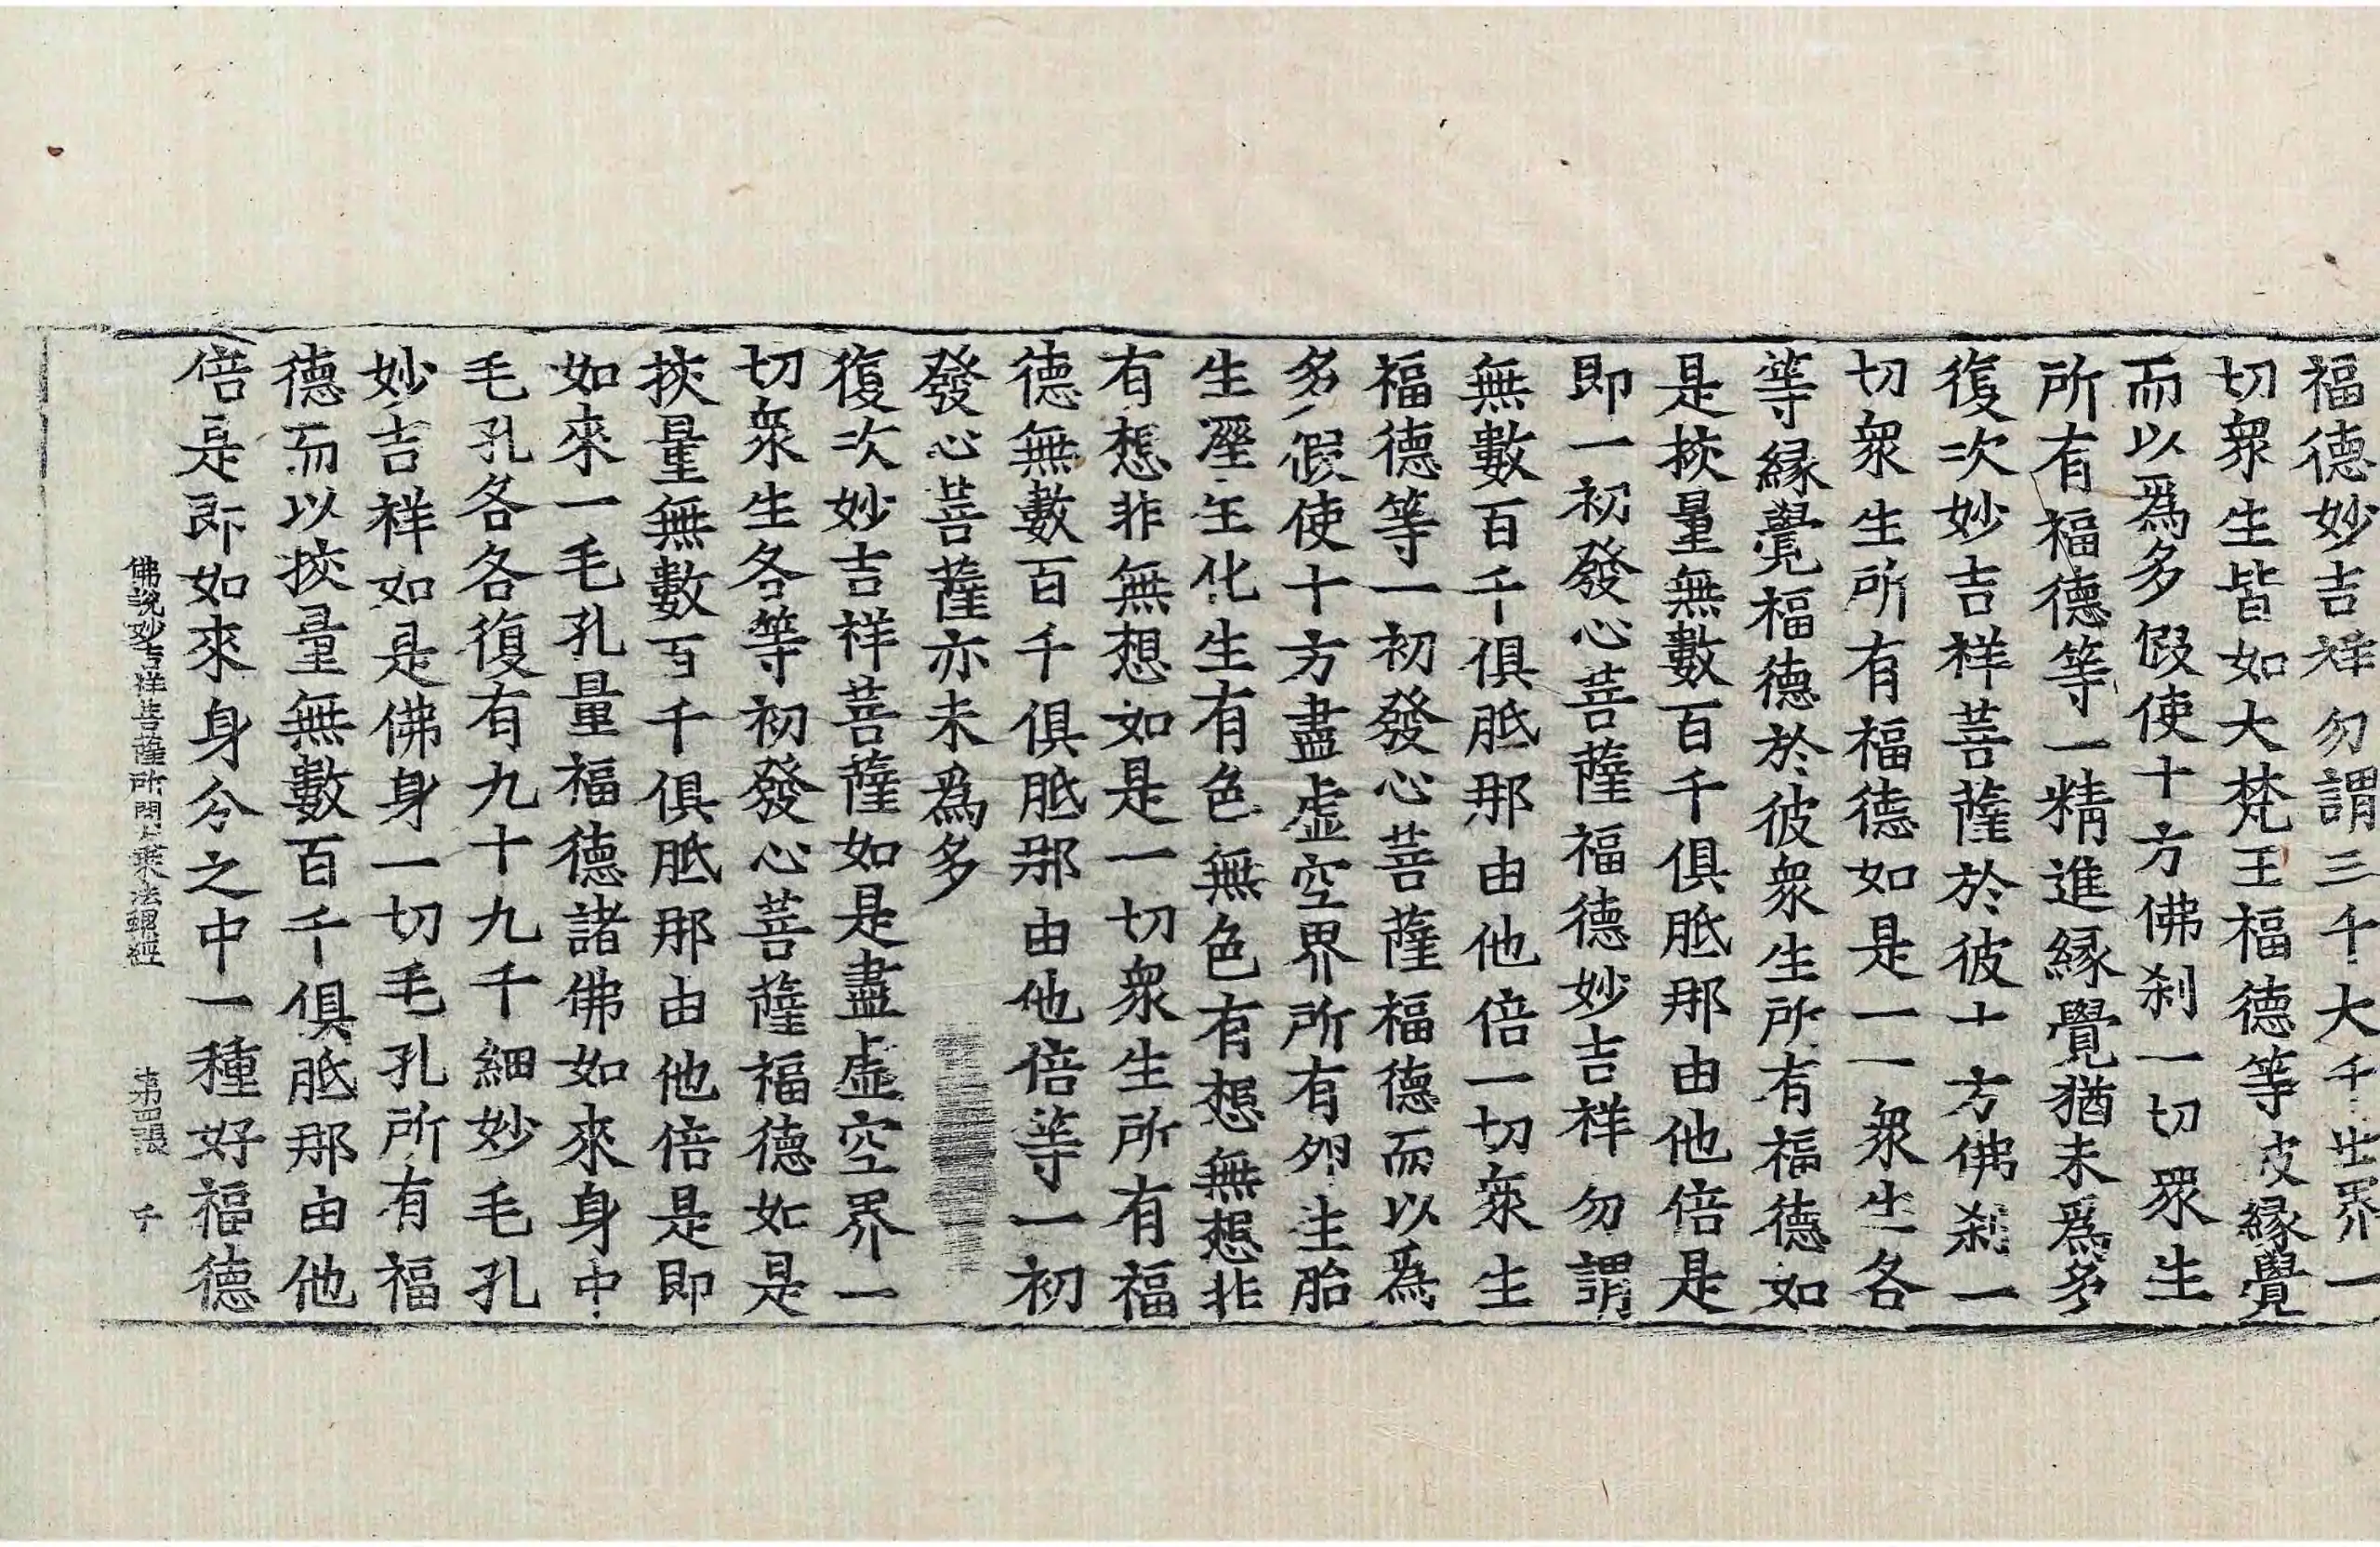 福德妙吉祥勿謂三千大千世界一
切衆生皆如大梵王福德等皮縁覺
而以爲多假使十方佛刹一切眾生
所有福德等一精進縁覺猶未爲多
復次妙吉祥菩薩於彼十方佛刹一
切衆生所有福德如是一一衆生各
等縁覺福德於彼衆生所有福德如
是挍量無數百千俱胝那由他倍是
即一初發心菩薩福德妙吉祥勿謂
無數百千俱胝那由他倍一切衆生
福德等一初發心菩薩福德而以爲
多假使十方盡虛空界所有卵生胎
生溼生化生有色無色有想無想非
有想非無想如是一切衆生所有福
德無數百千俱胝那由他倍等一初
發心菩薩亦未爲多
復次妙吉祥菩薩如是盡虛空界一
切衆生各等初發心菩薩福德如是
挍量無數百千俱胝那由他倍是即
如來一毛孔量福德諸佛如來身中
毛孔各各復有九十九千細妙毛孔
妙吉祥如是佛身一切毛孔所有福
德而以挍量無數百千俱胝那由他
倍是即如來身分之中一種好福德
佛說妙吉祥菩薩所問大乘法螺經 第四張 千